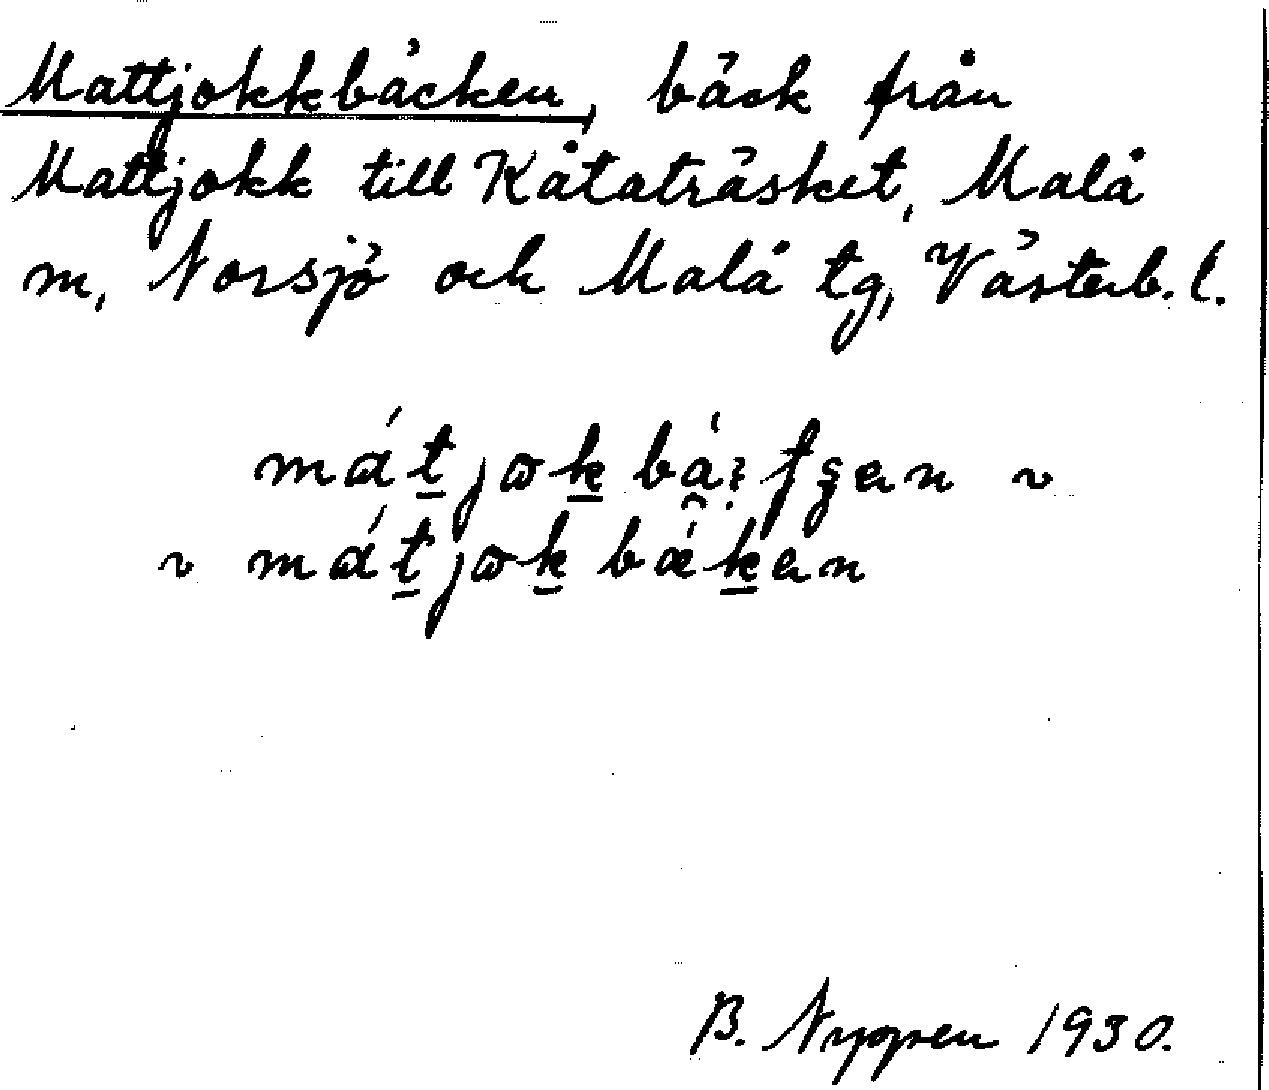 Mattjokkbäcken, bäck från
Mattjokk till Kåtaträsket, Malå
m, Norsjö och Malå tg, Västerb. l.
~ mát̲jωk̲ bǽk̲an
B. Nygren 1930.